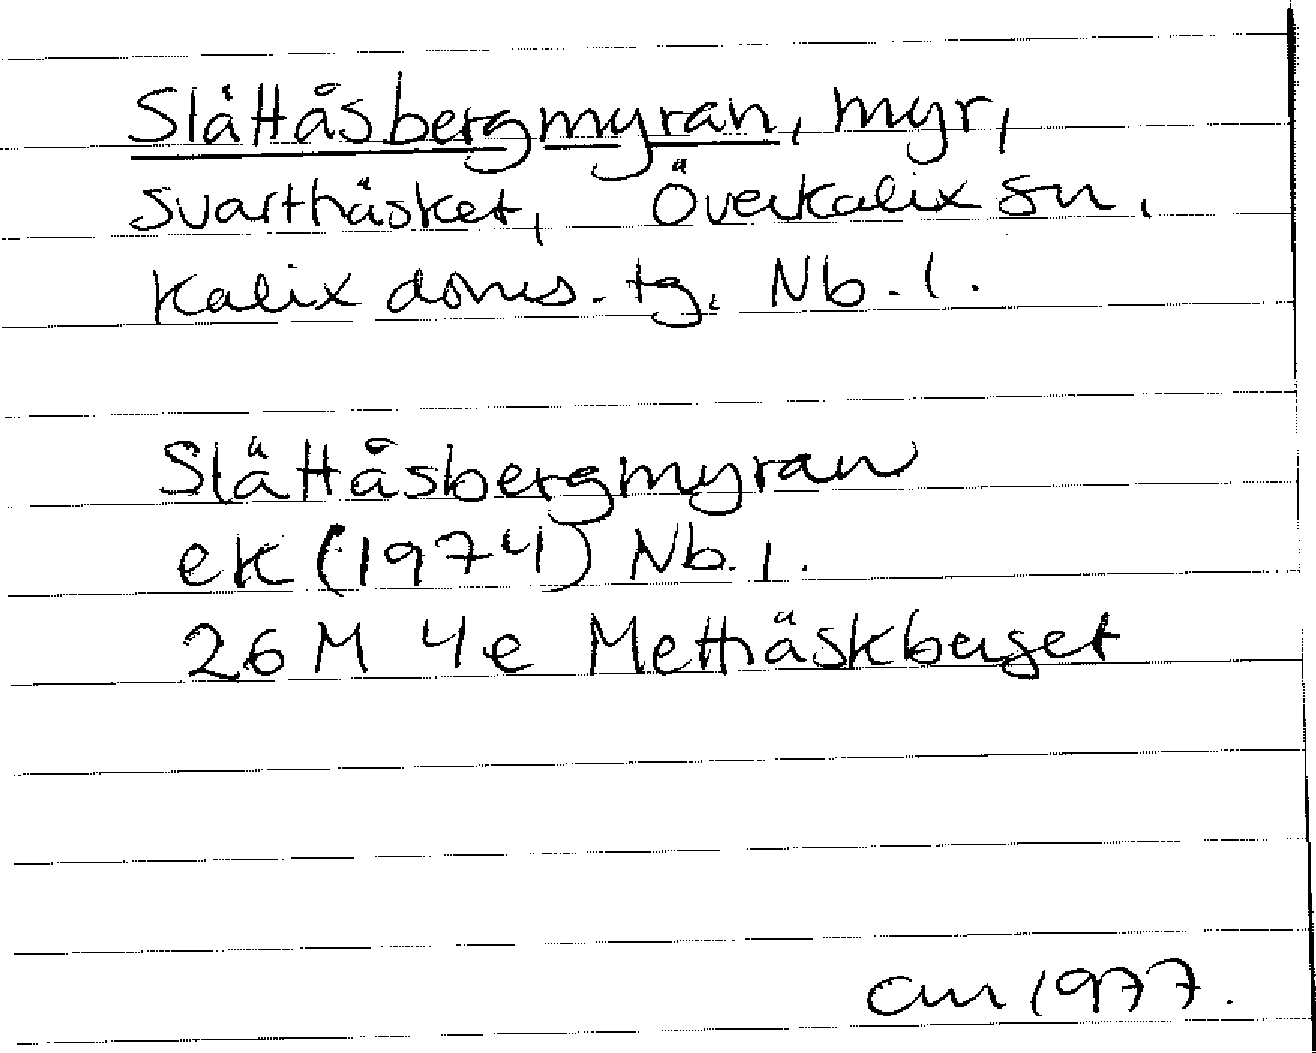 Slåttåsbergmyran, myr,
Svartträsket, Överkalix sn,
Kalix doms. tg. Nb. l.
Slättåsbergmyran
ek (1974) Nb. l.
26 M 4e Metträskberget
am 1977.